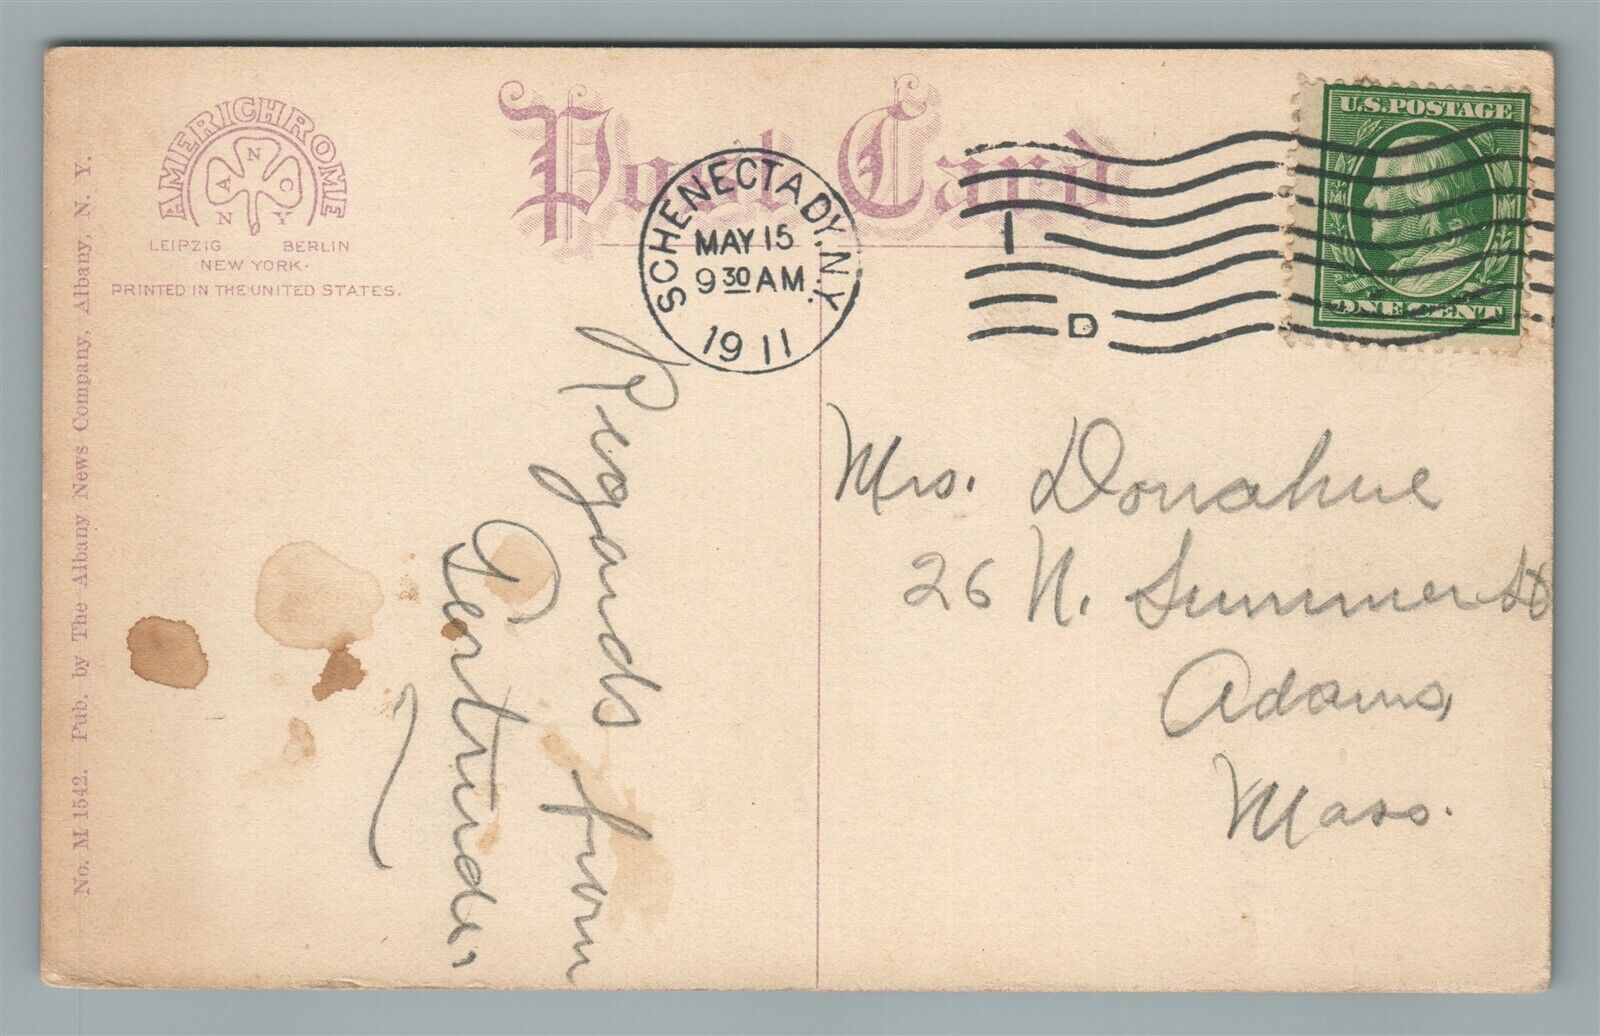 AMERICHROME
A N C
N Y
LEIPZIG BERLIN
NEW YORK.
PRINTED IN THE UNITED STATES.
No. M 1542. Pub. by The Albany News Company, Albany, N. Y.
Post Card
SCHENECTADY, N.Y.
MAY 15
9 30 AM
1911
1
D
U.S. POSTAGE
ONE CENT
Regards from
Gertrude.
Mrs. Donahue
26 N. Summer St
Adams,
Mass.